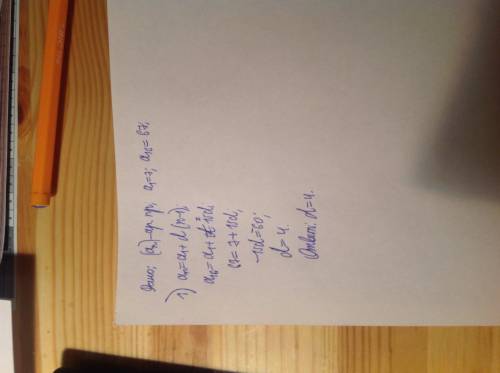 Дано; (aₙ)-ар. пр, a₁=7; a₁₆=67;
1) aₙ=a₁+d(n-1);
a₁₆=a₁+15d;
67=7+15d;
-15d=60;
d=4.
Ответ: d=4.